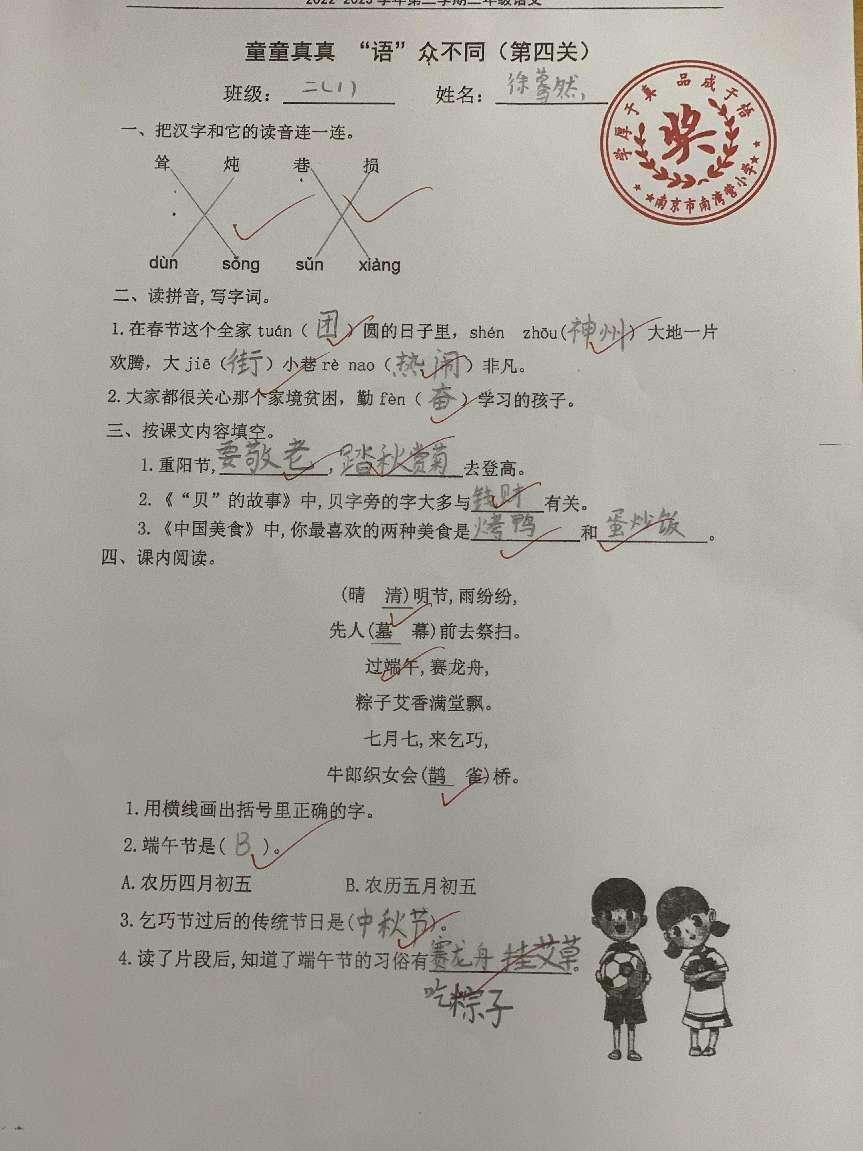 2022-2023学年第二学期二年级语文
童童真真 “语”众不同（第四关）
班级：二(1) 姓名：徐蓦然
学厚于真 品成于悟
奖
南京市南湾营小学
一、把汉字和它的读音连一连。
耸 炖 巷 损
dùn sǒng sǔn xiàng
二、读拼音,写字词。
1.在春节这个全家 tuán（团）圆的日子里，shén zhōu(神州) 大地一片
欢腾，大 jiē（街）小巷 rè nao（热闹）非凡。
2.大家都很关心那个家境贫困，勤 fèn（奋）学习的孩子。
三、按课文内容填空。
1.重阳节,要敬老,踏秋赏菊去登高。
2.《“贝”的故事》中,贝字旁的字大多与钱财有关。
3.《中国美食》中,你最喜欢的两种美食是烤鸭和蛋炒饭。
四、课内阅读。
(晴 清)明节,雨纷纷,
先人(墓 幕)前去祭扫。
过端午,赛龙舟,
粽子艾香满堂飘。
七月七,来乞巧,
牛郎织女会(鹊 雀)桥。
1.用横线画出括号里正确的字。
2.端午节是( B )。
A.农历四月初五 B.农历五月初五
3.乞巧节过后的传统节日是(中秋节)。
4.读了片段后,知道了端午节的习俗有赛龙舟 挂艾草。
吃粽子